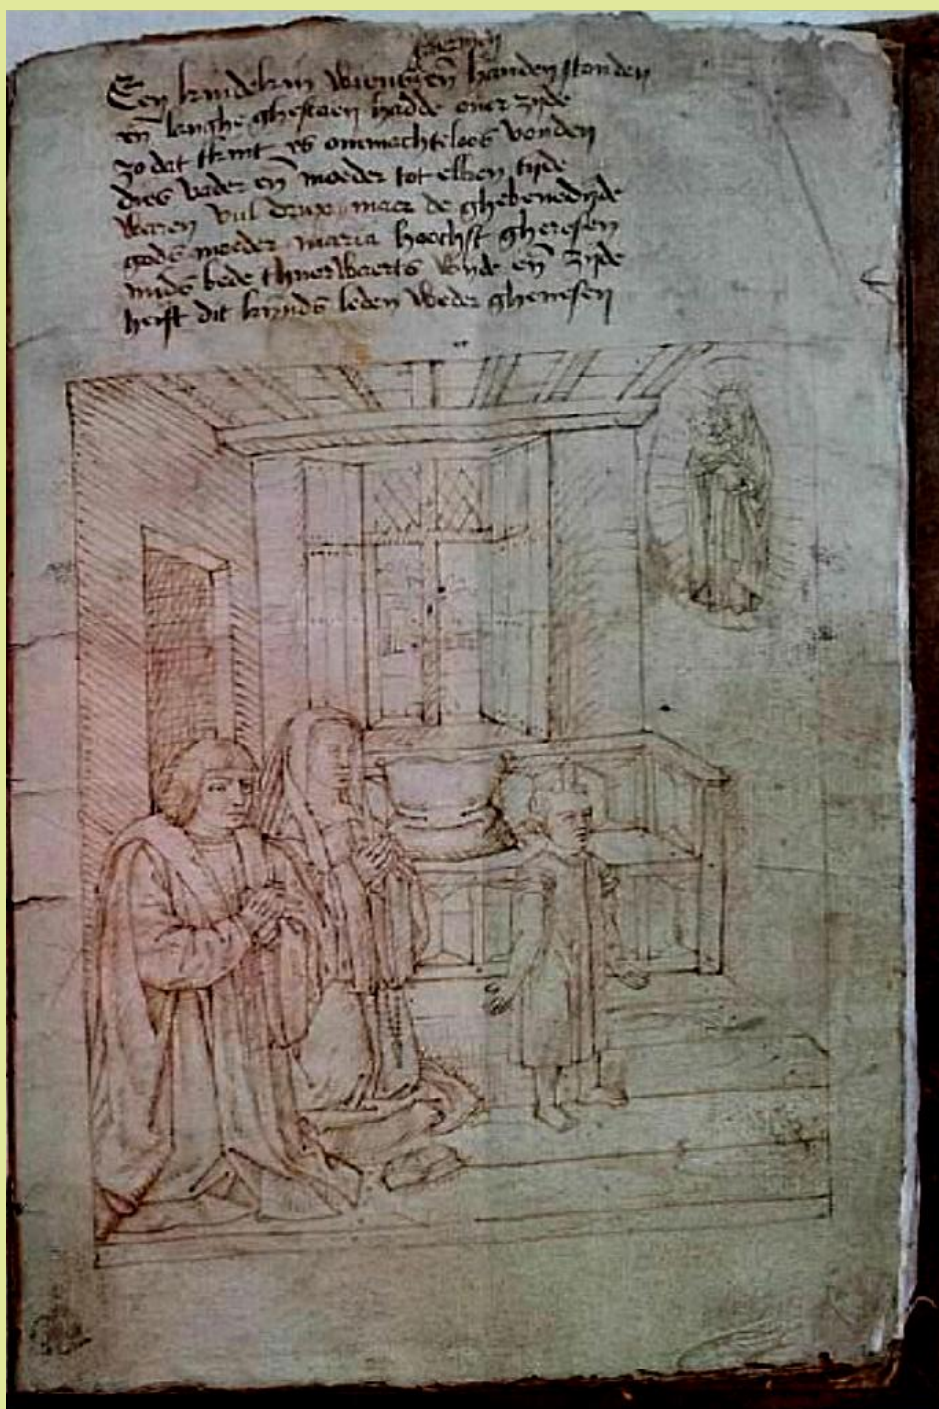 aermen
Een kindekin wientz en̄ handen stonden
en̄ langhe ghestaen hadde over zyde
zo dat tkint es onmachteloos vonden
dies vader en̄ moeder tot elken tyde
waren vul drux maer de ghebenedyde
gods moeder maria hoochst gheresen
mids bede thuerwaerts wyde en̄ zyde
heift dit kynds leden weder ghenesen